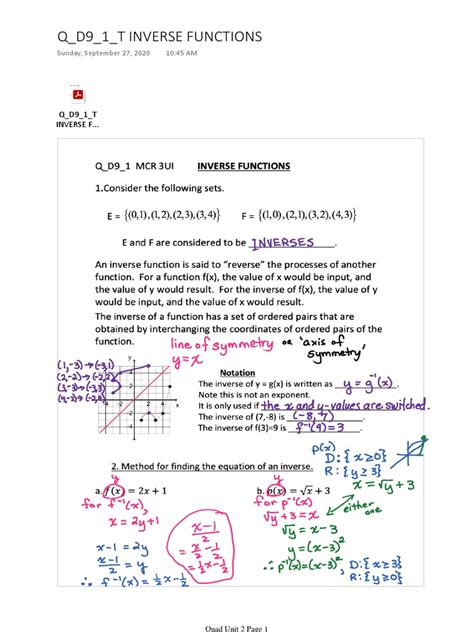 Q_D9_1_T INVERSE FUNCTIONS
Sunday, September 27, 2020 10:45 AM
Q_D9_1_T
INVERSE F...
Q_D9_1 MCR 3UI INVERSE FUNCTIONS
1.Consider the following sets.
E = {(0,1),(1,2),(2,3),(3,4)} F = {(1,0),(2,1),(3,2),(4,3)}
E and F are considered to be INVERSES.
An inverse function is said to "reverse" the processes of another
function. For a function f(x), the value of x would be input, and
the value of y would result. For the inverse of f(x), the value of y
would be input, and the value of x would result.
The inverse of a function has a set of ordered pairs that are
obtained by interchanging the coordinates of ordered pairs of the
function.
line of symmetry or 'axis of
symmetry'
y=x
(1,-3)→(-3,1)
(2,-2)→(-2,2)
(3,-3)→(-3,3)
(4,-2)→(-2,4)
Notation
The inverse of y = g(x) is written as y = g⁻¹(x).
Note this is not an exponent.
It is only used if the x and y-values are switched.
The inverse of (7,-8) is (-8,7)
The inverse of f(3)=9 is f⁻¹(9)=3.
p(x)
D:{x≥0}
R:{y≥3}
2. Method for finding the equation of an inverse.
y
a. f(x) = 2x + 1
for f⁻¹(x),
x = 2y+1
x-1 = 2y
x-1/2 = y
∴ f⁻¹(x)=½x-½
x-1/2
= x/2-1/2
= ½x-½
y
b. p(x) = √x + 3
for p⁻¹(x)
x = √y + 3
√y + 3 = x
either one
√y = x-3
y = (x-3)²
∴ p⁻¹(x)=(x-3)²,
D:{x≥3}
R:{y≥0}
Quad Unit 2 Page 1